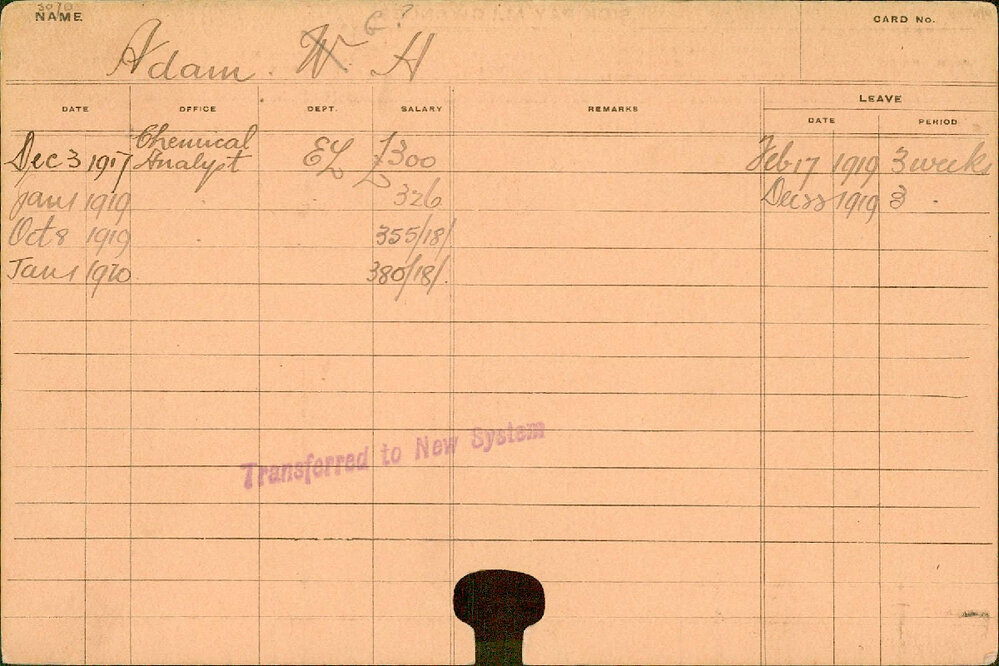 3070
NAME
CARD No.
G?
Adam. W. H
DATE OFFICE DEPT. SALARY REMARKS LEAVE
DATE PERIOD
Dec 3 1917 Chemical Analyst EL £300 Feb 17 1919 3 weeks
Jan 1 1919 £326 1919 3 "
Oct 8 1919 355/18/
Jan 1 1920 380/18/.
Transferred to New System